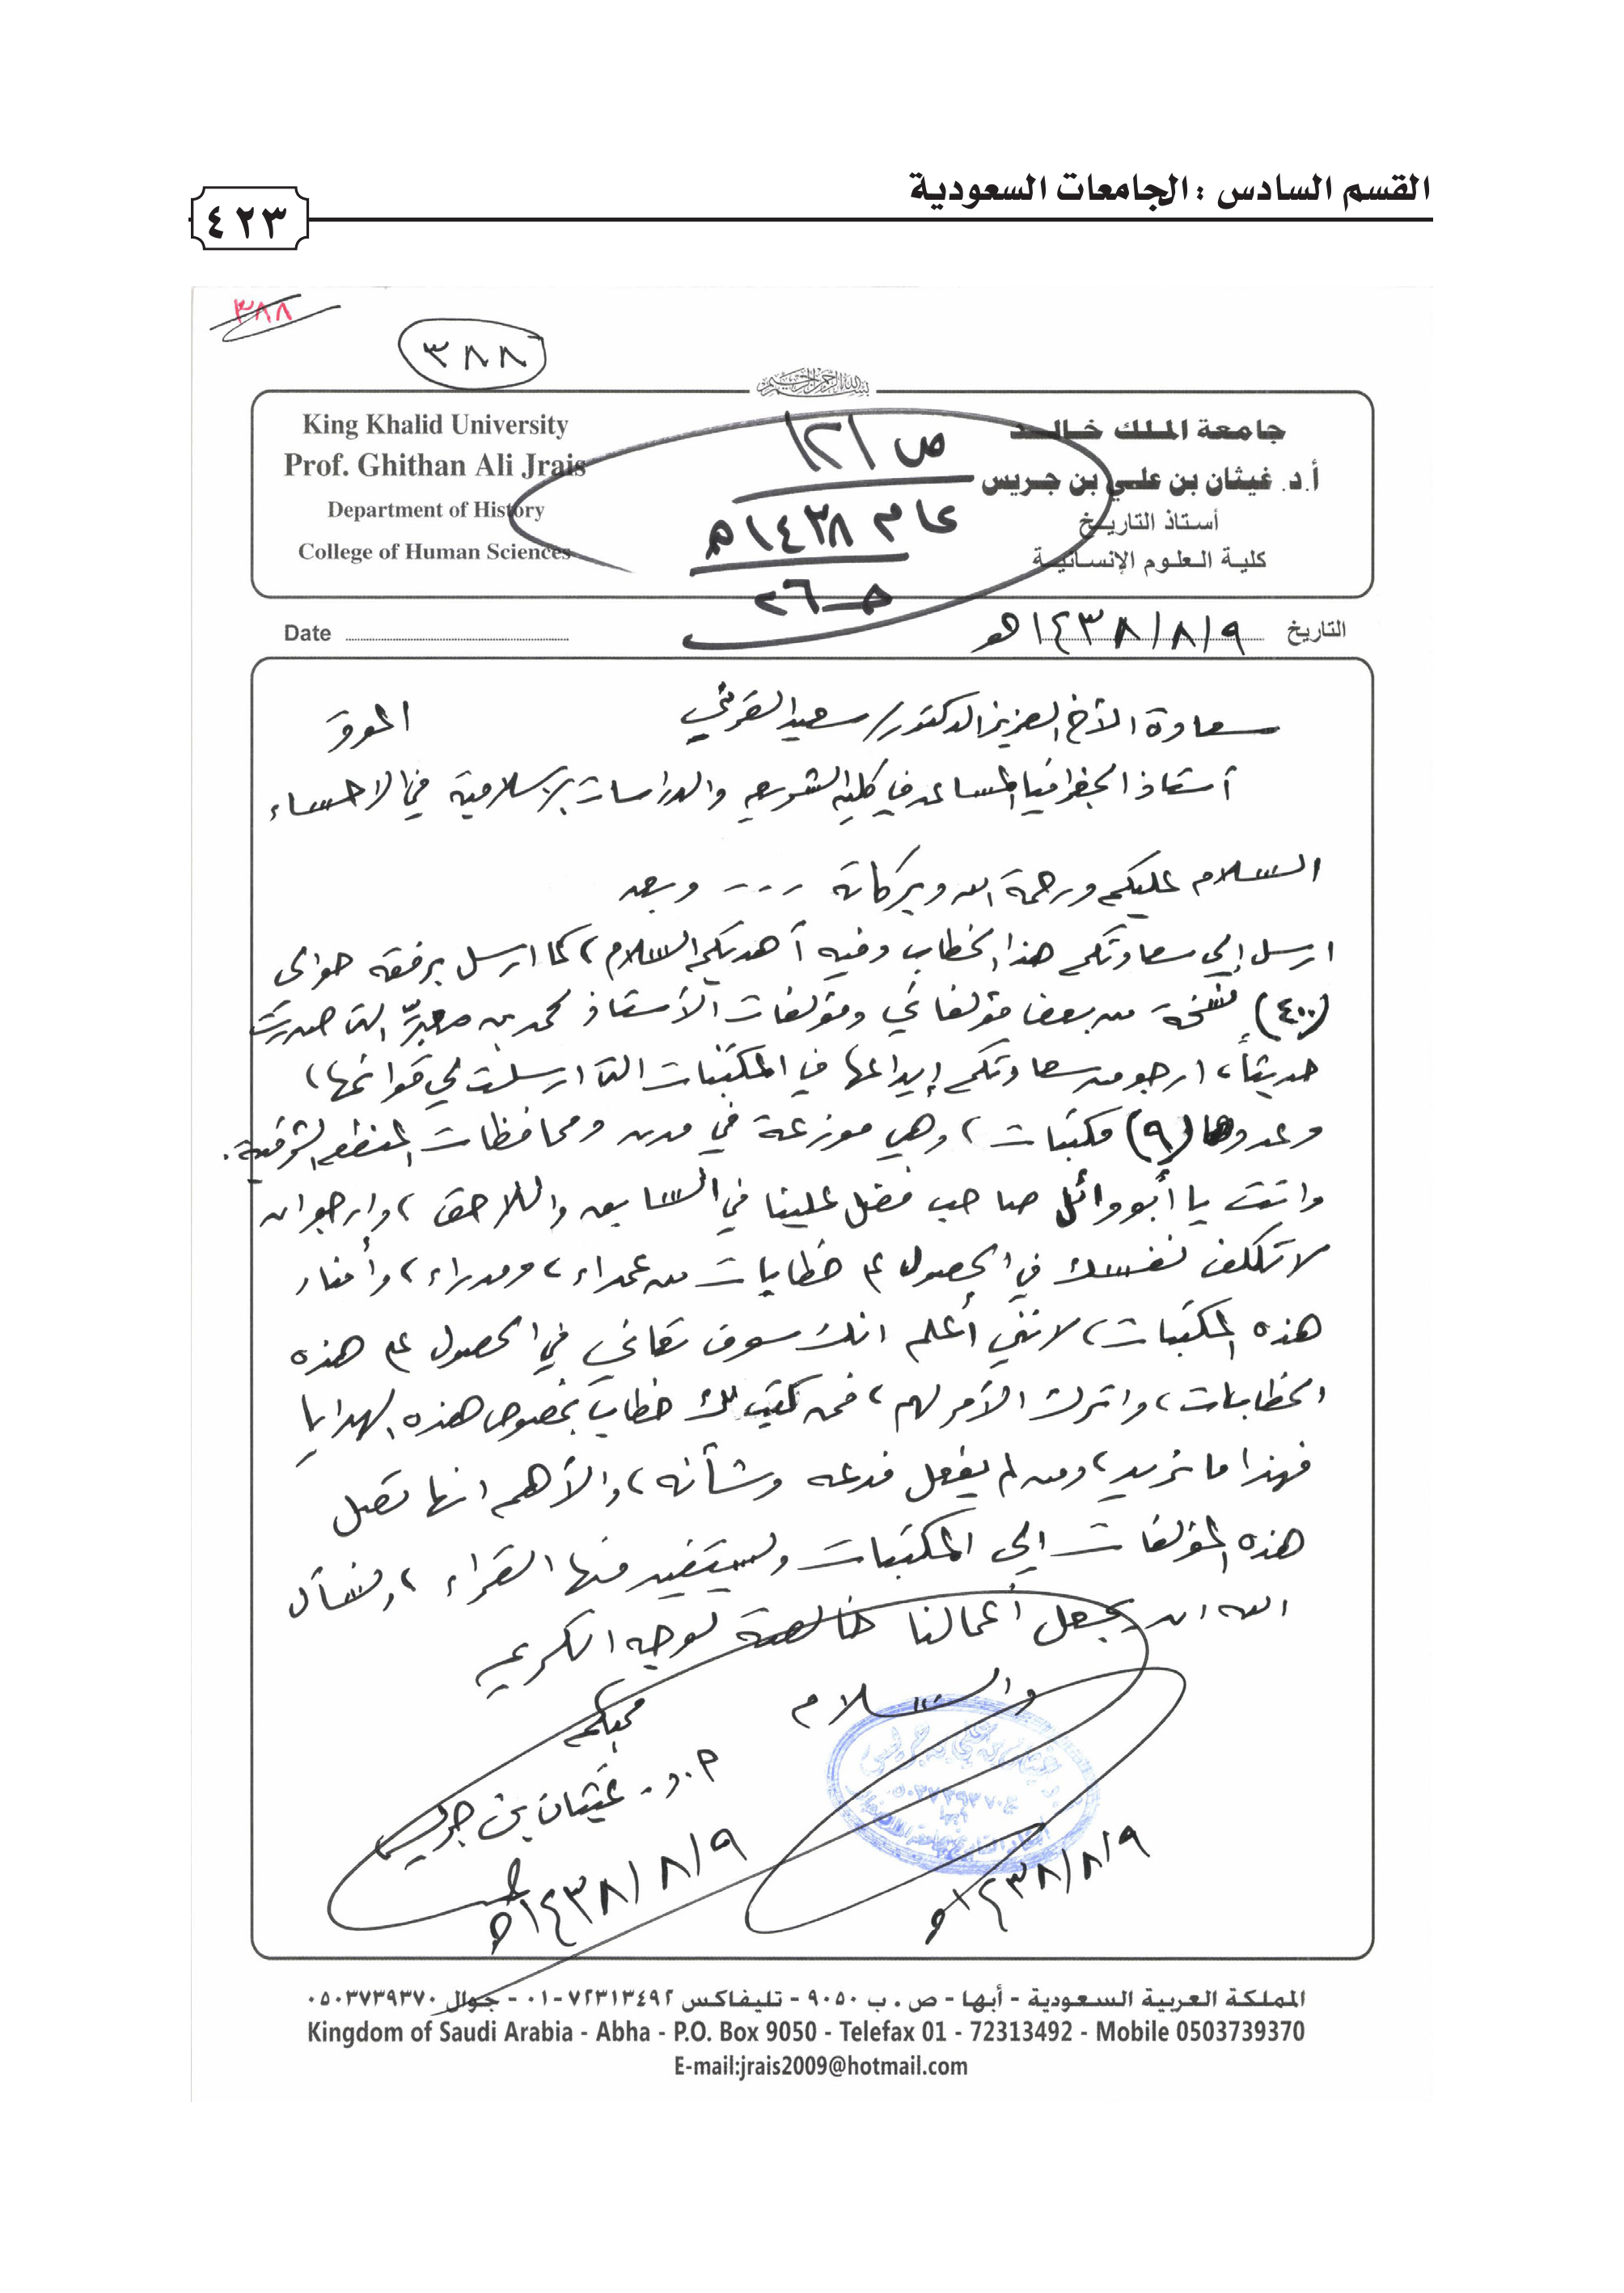 القسم السادس : الجامعات السعودية
٤٢٣
٣٨٨
٣٨٨
بسم الله الرحمن الرحيم
جامعة الملك خالد
أ.د. غيثان بن علي بن جريس
أستاذ التاريخ
كلية العلوم الإنسانية
King Khalid University
Prof. Ghithan Ali Jrais
Department of History
College of Human Sciences
ص ١٢١
عام ١٤٣٨هـ
حـ ٢٦
التاريخ ١٤٣٨/٨/٩هـ
Date
سعادة الأخ العزيز الدكتور/ سعيد القرني الموفق
أستاذ الجغرافيا المساعد في كلية الشريعة والدراسات الإسلامية في الاحساء
السلام عليكم ورحمة الله وبركاته --- وبعد
ارسل إلى سعادتكم هذا الخطاب وفيه أهديكم السلام، كما ارسل برفقه حوالى
(٤٠٠) نسخة من بعض مؤلفاتي ومؤلفات الأستاذ محمد بن معبر التي صدرت
حديثاً، ارجو من سعادتكم إيداعها في المكتبات التي ارسلت لي قوائمها،
وعددها (٩) مكتبات، وهي موزعة في مدن ومحافظات المنطقة الشرقية.
وانت يا أبو وائل صاحب فضل علينا في السابق واللاحق، وارجو ان
لا تكلف نفسك في الحصول على خطابات من عمداء، ومدراء، وأمناء
هذه المكتبات، لانني أعلم انك سوف تعاني في الحصول على هذه
الخطابات، واترك الأمر لهم، فمن كتب لك خطاب بخصوص هذه الهدايا
فهذا ما نريد، ومن لم يفعل فدعه وشأنه، والأهم انها تصل
هذه المؤلفات الى المكتبات ويستفيد منها القراء، ونسأل
الله ان يجعل أعمالنا خالصة لوجه الكريم
والسلام
محبكم
أ.د. غيثان بن جريس
١٤٣٨/٨/٩هـ
١٤٣٨/٨/٩هـ
المملكة العربية السعودية - أبها - ص . ب ٩٠٥٠ - تليفاكس ٧٢٣١٣٤٩٢-٠١ - جوال ٠٥٠٣٧٣٩٣٧٠
Kingdom of Saudi Arabia - Abha - P.O. Box 9050 - Telefax 01 - 72313492 - Mobile 0503739370
E-mail:jrais2009@hotmail.com